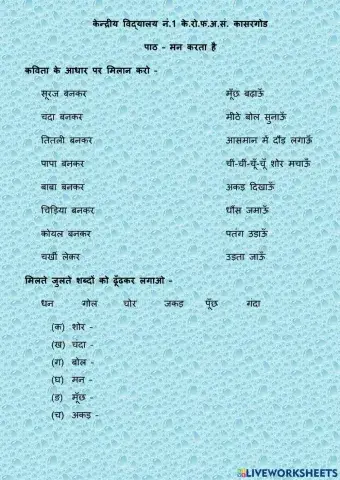 केन्द्रीय विद्यालय नं.1 के.रो.फ.अ.सं. कासरगोड
पाठ - मन करता है
कविता के आधार पर मिलान करो -
सूरज बनकर मूँछ बढ़ाऊँ
चंदा बनकर मीठे बोल सुनाऊँ
तितली बनकर आसमान में दौड़ लगाऊँ
पापा बनकर चीं-चीं-चूँ-चूँ शोर मचाऊँ
बाबा बनकर अकड़ दिखाऊँ
चिड़िया बनकर धौंस जमाऊँ
कोयल बनकर पतंग उड़ाऊँ
चर्खी लेकर उड़ता जाऊँ
मिलते जुलते शब्दों को ढूँढकर लगाओ -
धन गोल चोर जकड़ पूँछ गंदा
(क) शोर -
(ख) चंदा -
(ग) बोल -
(घ) मन -
(ङ) मूँछ -
(च) अकड़ -
LIVEWORKSHEETS